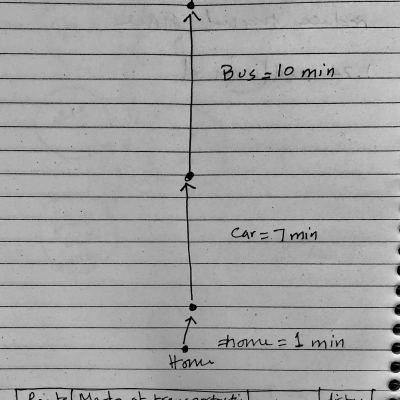 Bus = 10 min
Car = 7 min
home = 1 min
Home
Mode of transportati